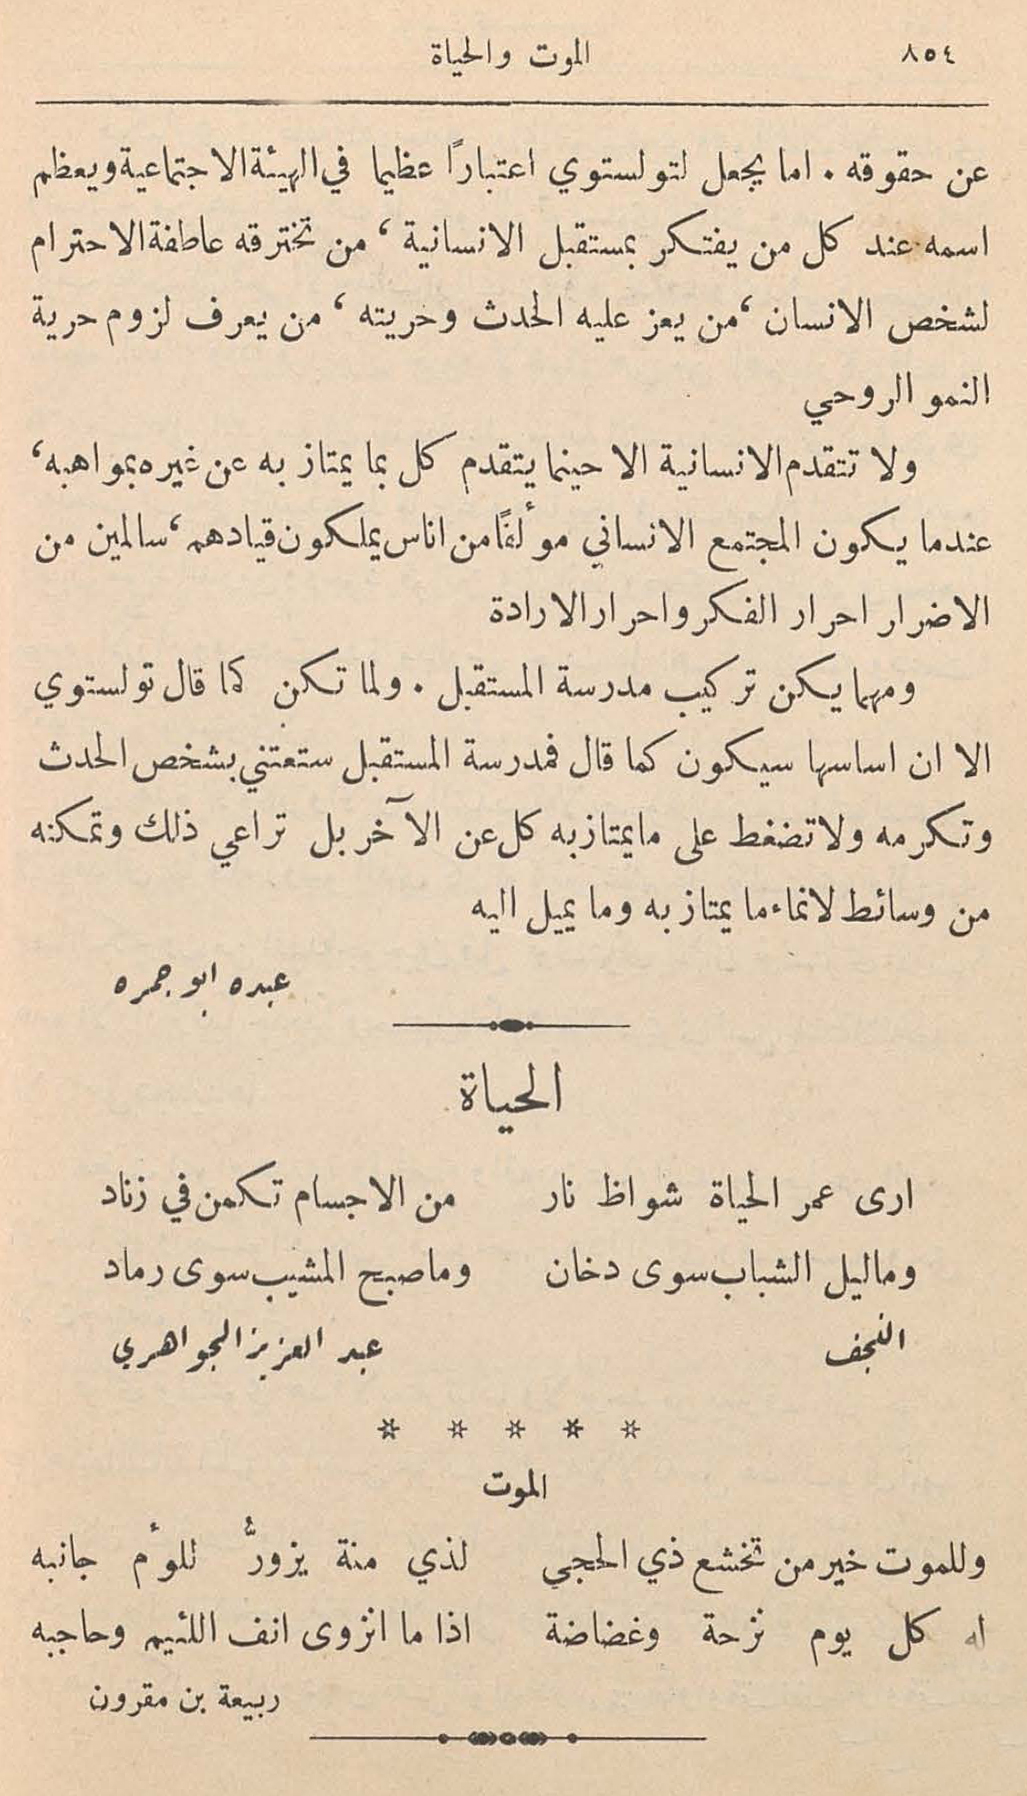 ٨٥٤ الموت والحياة
عن حقوقه . اما يجعل لتولستوي اعتباراً عظيما في الهيئة الاجتماعية ويعظم
اسمه عند كل من يفتكر بمستقبل الانسانية ، من تخترقه عاطفة الاحترام
لشخص الانسان ، من يعز عليه الحدث وحريته ، من يعرف لزوم حرية
النمو الروحي
ولا تتقدم الانسانية الا حينما يتقدم كل بما يمتاز به عن غيره بمواهبه ،
عندما يكون المجتمع الانساني مؤلفاً من اناس يملكون قيادهم ، سالمين من
الاضرار احرار الفكر واحرار الارادة
ومهما يكن تركيب مدرسة المستقبل . ولما تكن كما قال تولستوي
الا ان اساسها سيكون كما قال فمدرسة المستقبل ستعتني بشخص الحدث
وتكرمه ولا تضغط على ما يمتاز به كل عن الآخر بل تراعي ذلك وتمكنه
من وسائط لانماء ما يمتاز به وما يميل اليه
عبده ابو جمره
الحياة
ارى عمر الحياة شواظ نار من الاجسام تكمن في زناد
وما ليل الشباب سوى دخان وما صبح المشيب سوى رماد
النجف عبد العزيز الجواهري
* * * * *
الموت
وللموت خير من تخشع ذي الحجى لذي منة يزورُّ للؤم جانبه
له كل يوم نزحة وغضاضة اذا ما انزوى انف اللئيم وحاجبه
ربيعة بن مقرون